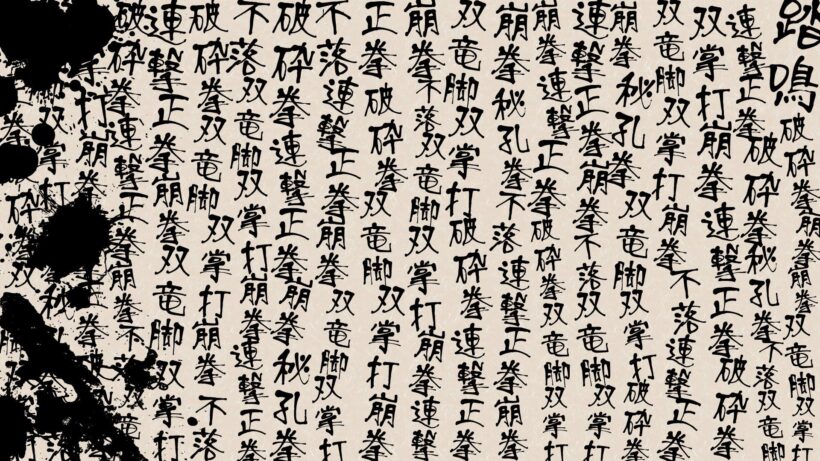 踏鳴破砕拳崩拳崩拳双竜脚双掌打
連撃正拳破砕拳秘孔拳不落双竜
双掌打崩拳連撃正拳破砕拳
双竜脚双掌打崩拳不落連撃正拳
崩拳秘孔拳双竜脚双掌打破砕拳
連撃正拳崩拳不落双竜脚双掌打
崩拳連撃正拳破砕拳双竜脚双掌打
崩拳秘孔拳不落連撃正拳崩拳
双竜脚双掌打破砕拳連撃正拳
崩拳不落双竜脚双掌打崩拳連撃
正拳破砕拳双竜脚双掌打崩拳
不落連撃正拳崩拳双竜脚双掌打
破砕拳連撃正拳崩拳秘孔拳
不落双竜脚双掌打崩拳連撃正拳
破砕拳双竜脚双掌打崩拳不落
連撃正拳崩拳双竜脚双掌打
破砕拳連撃正拳崩拳不落
打崩拳拳破
双掌打秘
拳砕拳双